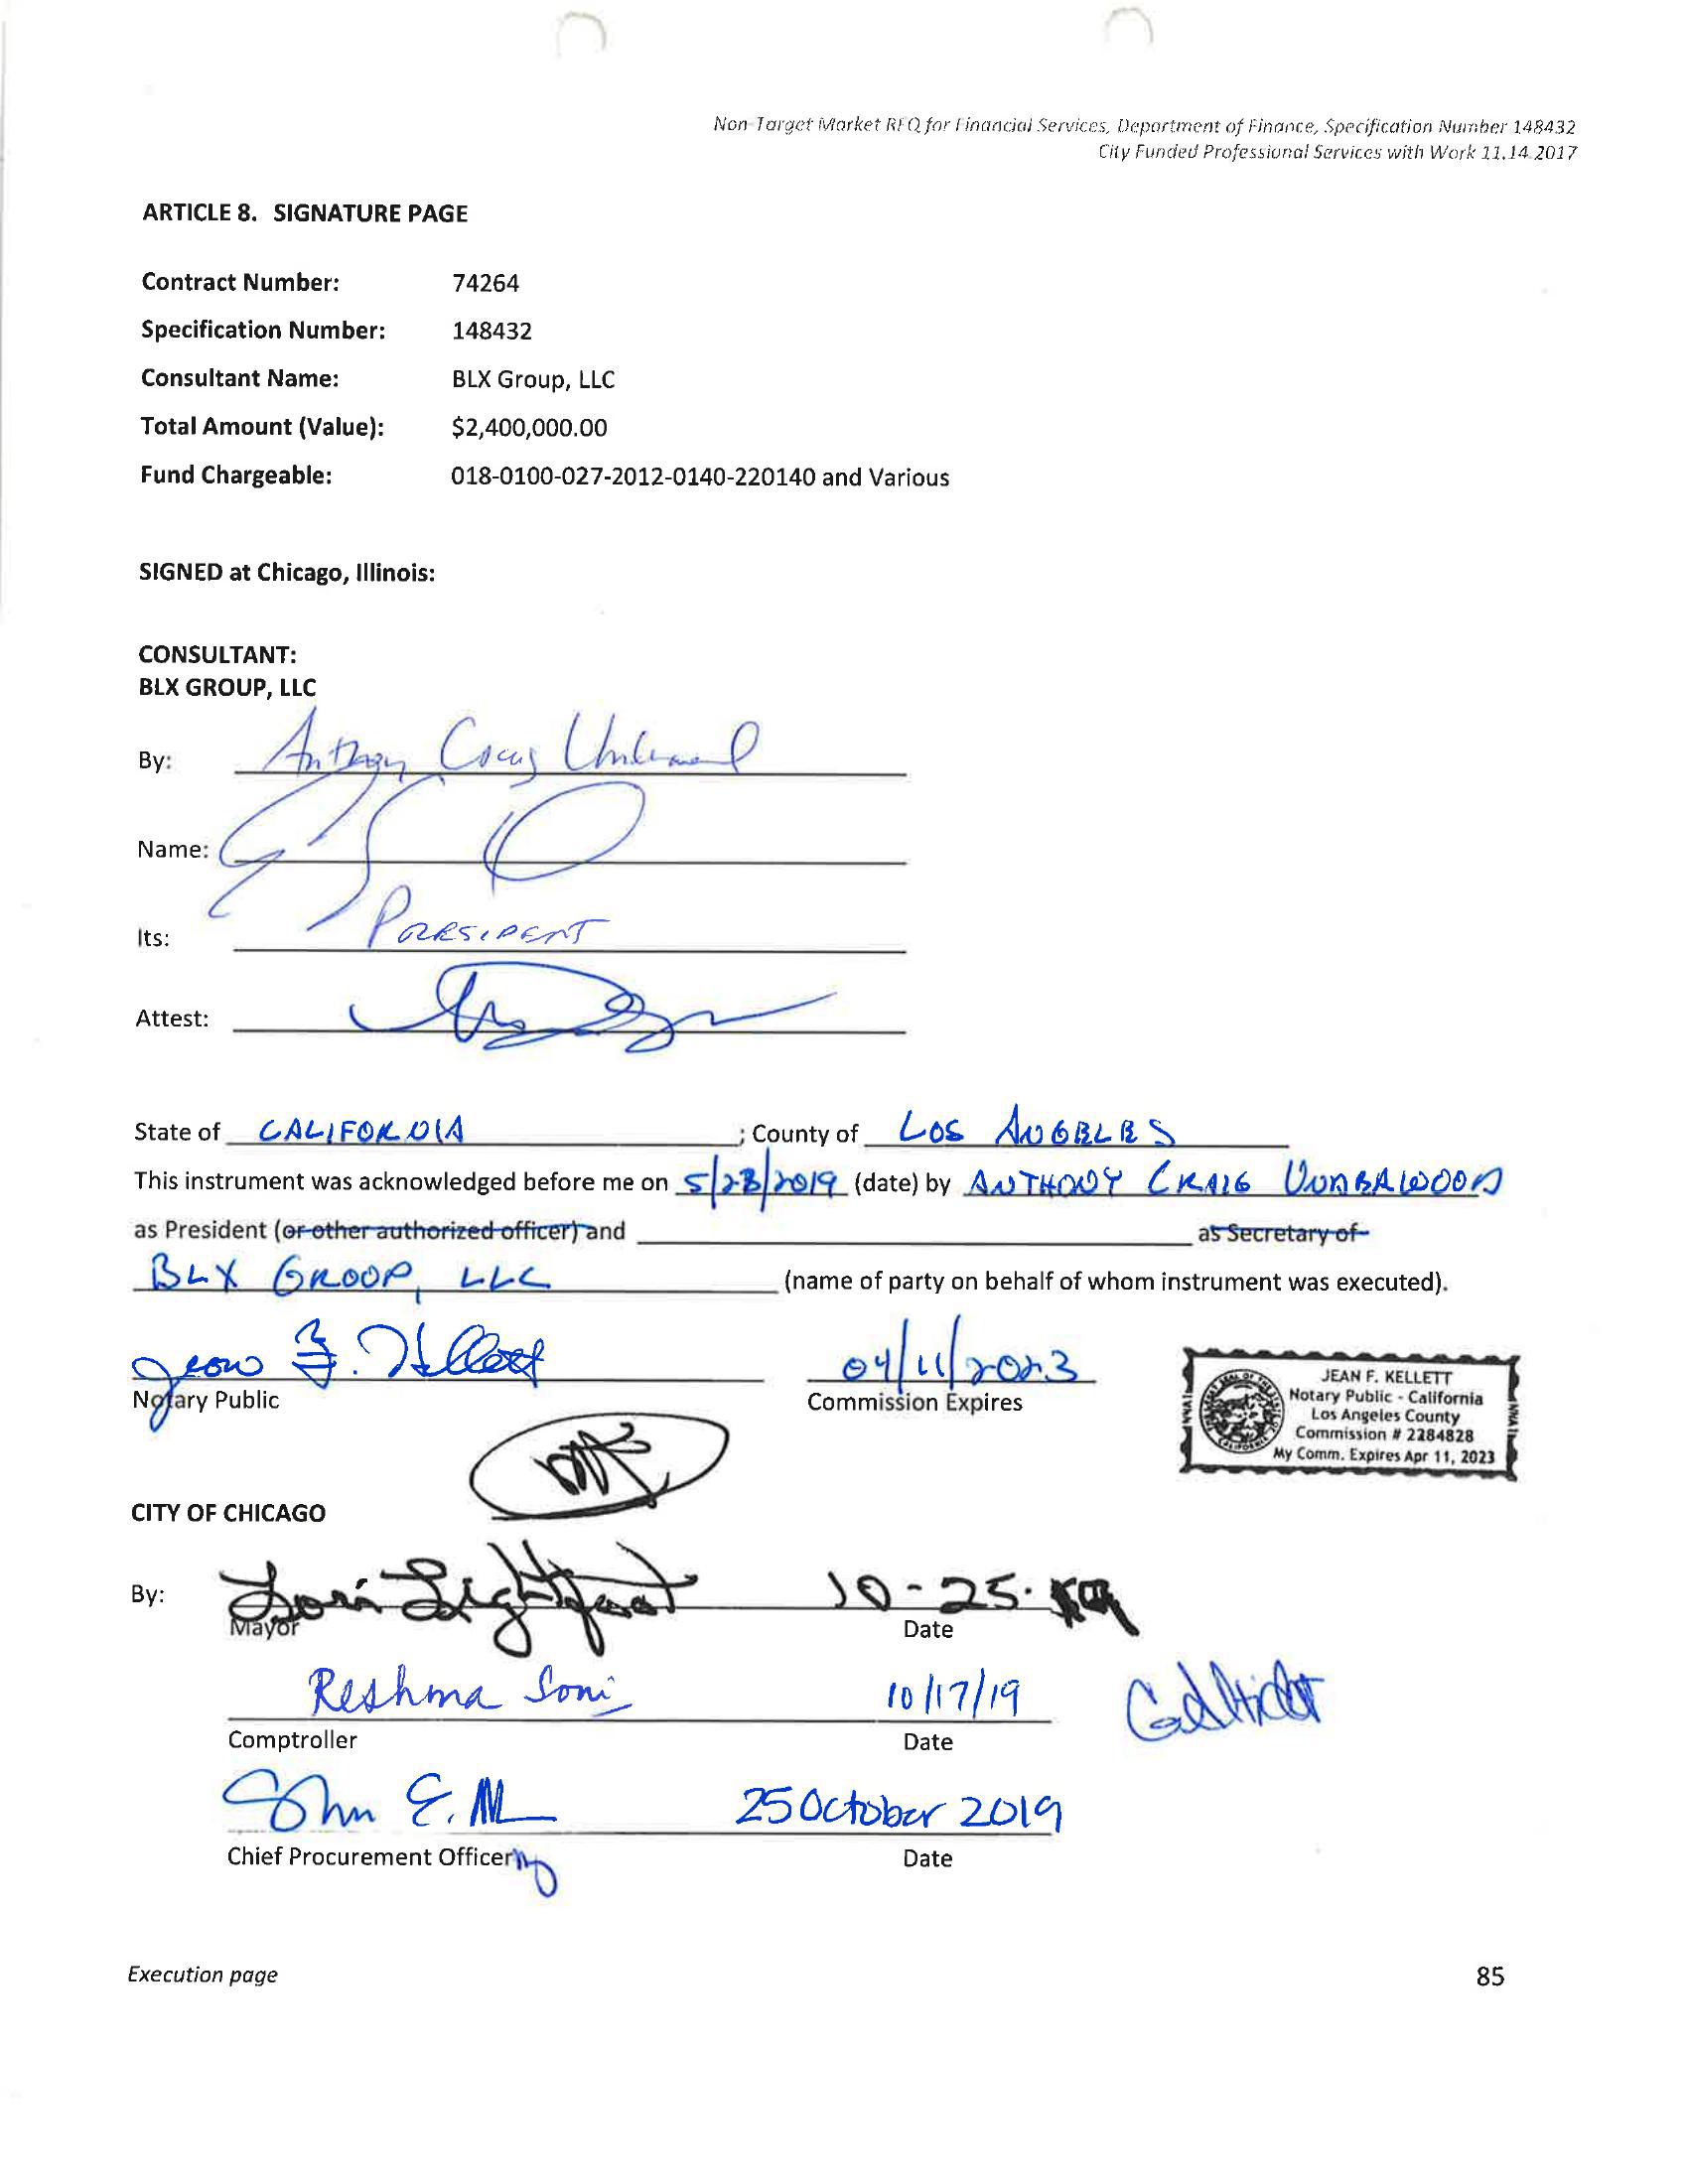 Non-Target Market RFQ for Financial Services, Department of Finance, Specification Number 148432
City Funded Professional Services with Work 11.14.2017
ARTICLE 8. SIGNATURE PAGE
Contract Number: 74264
Specification Number: 148432
Consultant Name: BLX Group, LLC
Total Amount (Value): $2,400,000.00
Fund Chargeable: 018-0100-027-2012-0140-220140 and Various
SIGNED at Chicago, Illinois:
CONSULTANT:
BLX GROUP, LLC
By: Anthony Craig
Name:
Its: PRESIDENT
Attest:
State of CALIFORNIA ; County of LOS ANGELES
This instrument was acknowledged before me on 5/23/2019 (date) by ANTHONY CRAIG
as President (or other authorized officer) and as Secretary of
BLX GROUP, LLC (name of party on behalf of whom instrument was executed).
Jean F. Kellett 04/11/2023
Notary Public Commission Expires
JEAN F. KELLETT
Notary Public - California
Los Angeles County
Commission # 2284828
My Comm. Expires Apr 11, 2023
CITY OF CHICAGO
By: Lori Lightfoot 10-25-
Mayor Date
Reshma Soni 10/17/19
Comptroller Date
25 October 2019
Chief Procurement Officer Date
Execution page 85